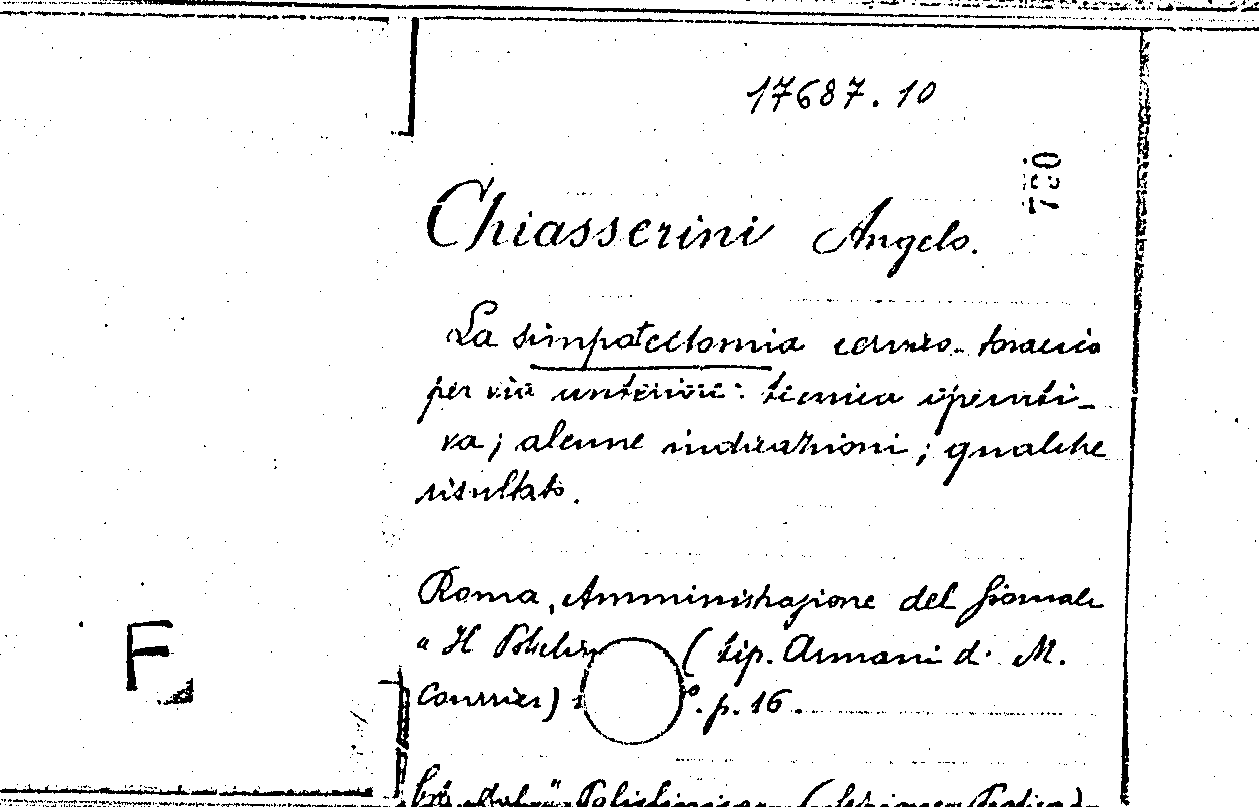 17687.10
780
Chiasserini Angelo.
La simpatectomia cervico-toracica
per via anteriore: tecnica operati-
va; alcune indicazioni; qualche
risultato.
Roma, Amministrazione del Giornale
"Il Policlin ( tip. Armani di M.
Courrier) °. p. 16.
F
Policlinico (Sezione Pratica)